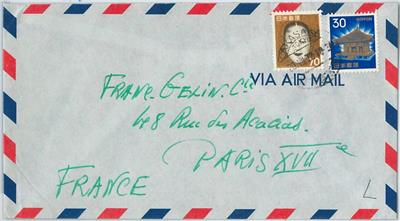 日本郵便
70
30 NIPPON
日本郵便
VIA AIR MAIL
FRANC. GELIN. Cie
48 Rue des Acacias.
PARIS XVIIe
FRANCE
L